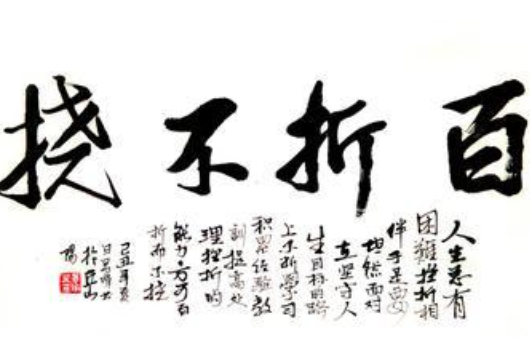 百折不挠
人生总有
困难挫折相
伴于是要
坦然面对
在坚守人
生目标的路
上不断学习
积累经验教
训提高处
理挫折的
能力方可百
折而不挠
己丑年夏
日
於山